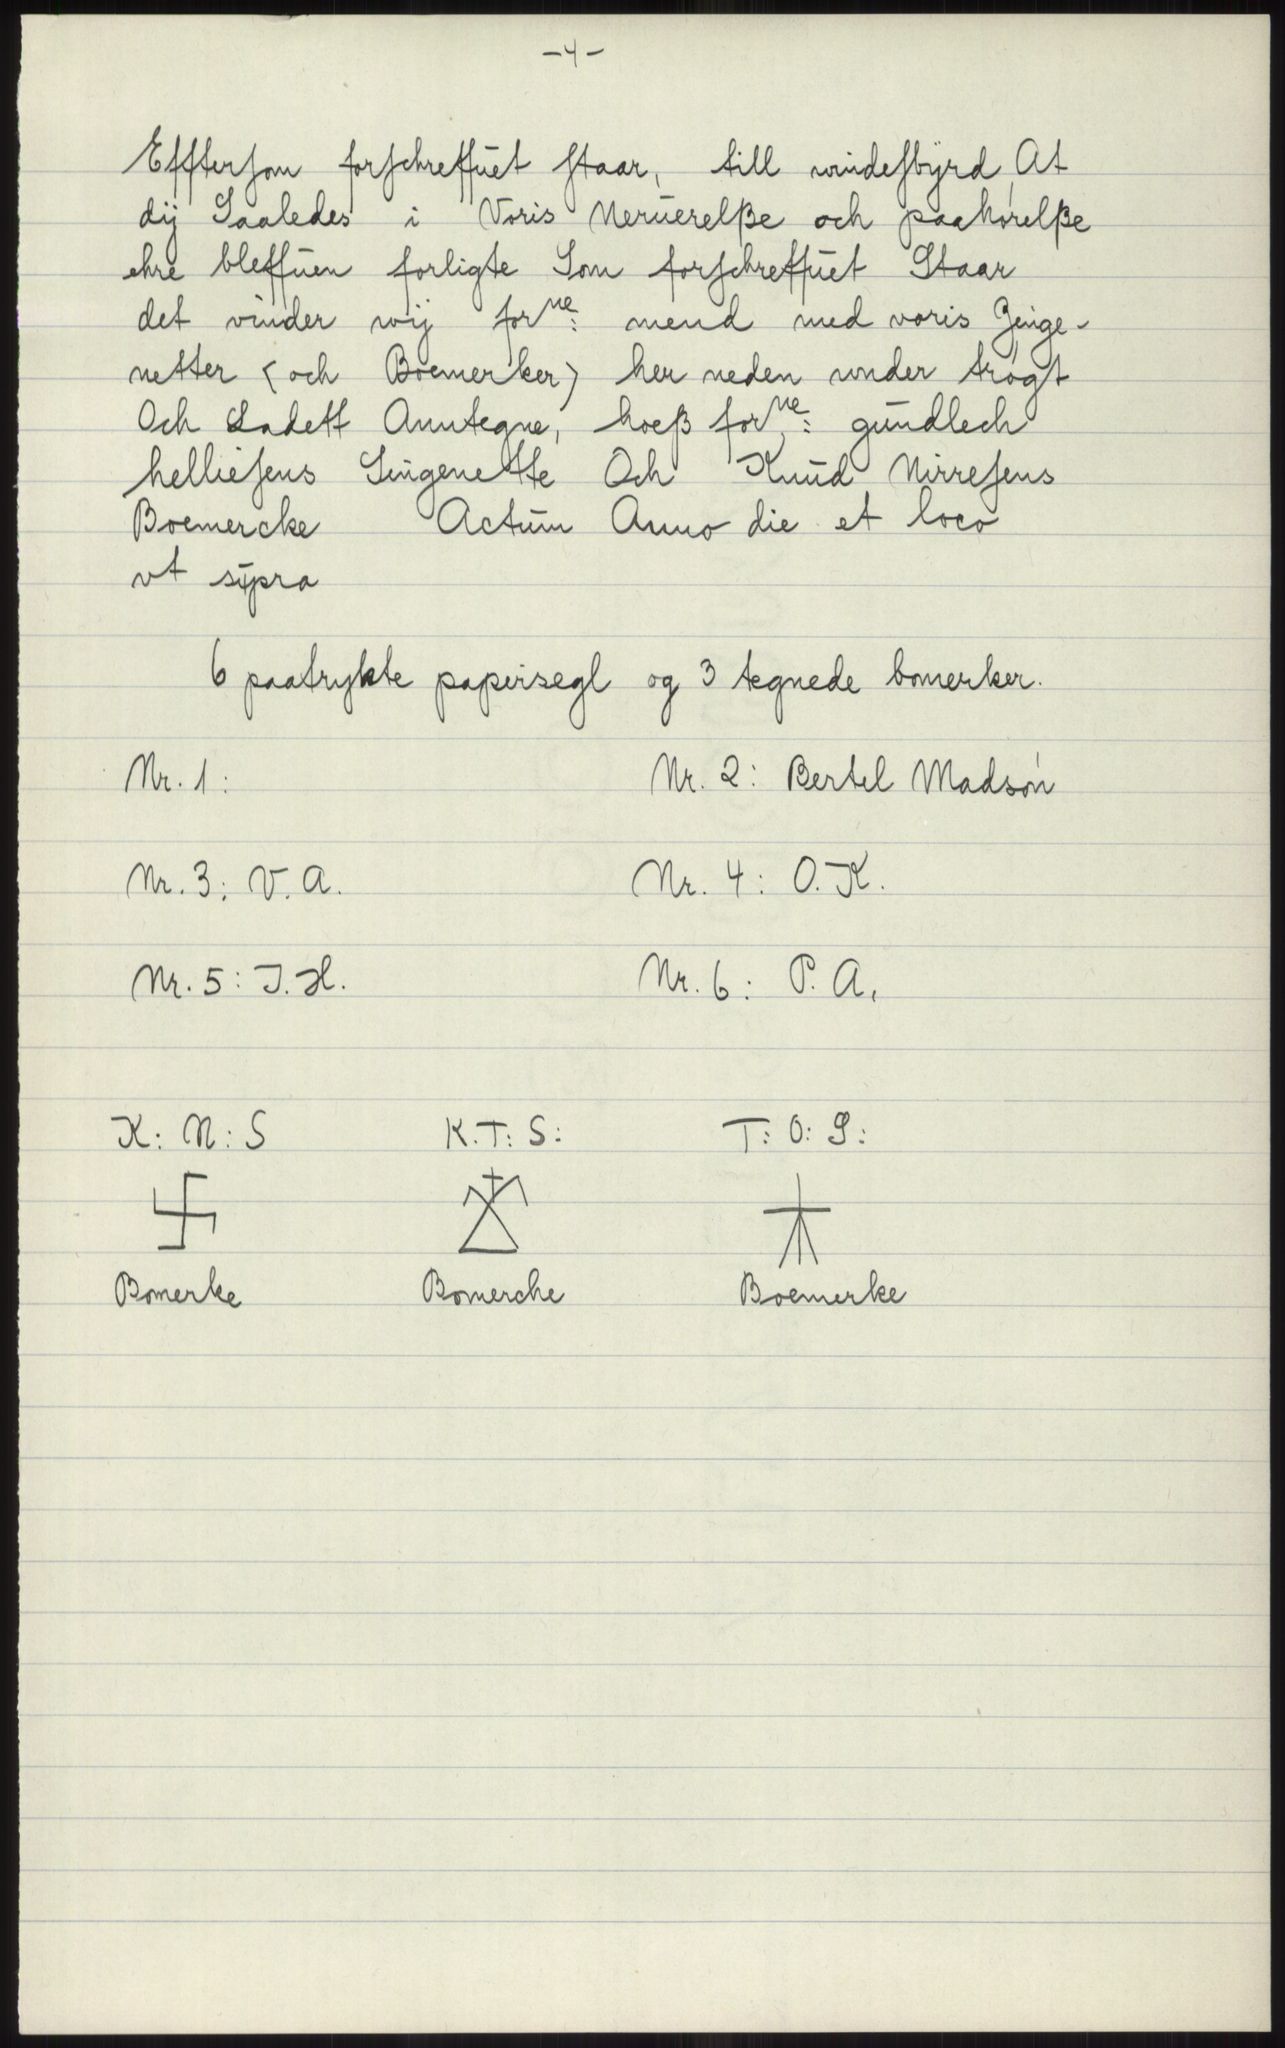 -4-
Effterſom forſchreffuet ſtaar, till windeſbyrd, At
dij Saaledes i Voris Neruerelße och paahørelße
ehre bleffuen forligte Som forſchreffuet Staar
det vinder wij forne: mend med voris Zinge-
netter (och Boemerker) her neden wnder trøgt
Och Ladett Anntegne, hoeß forne: gundlech
hellieſens Singenette Och Knud Nirreſens
Boemercke Actum Anno die et loco
vt supra
6 paatrykte papirsegl og 3 tegnede bomerker.
Nr. 1: Nr. 2: Bertel Madsøn
Nr. 3: V. A. Nr. 4: O. K.
Nr. 5: J. H. Nr. 6: P. A.
K: N: S K. T: S: T: O: S:
Bomerke Bomerche Boemerke